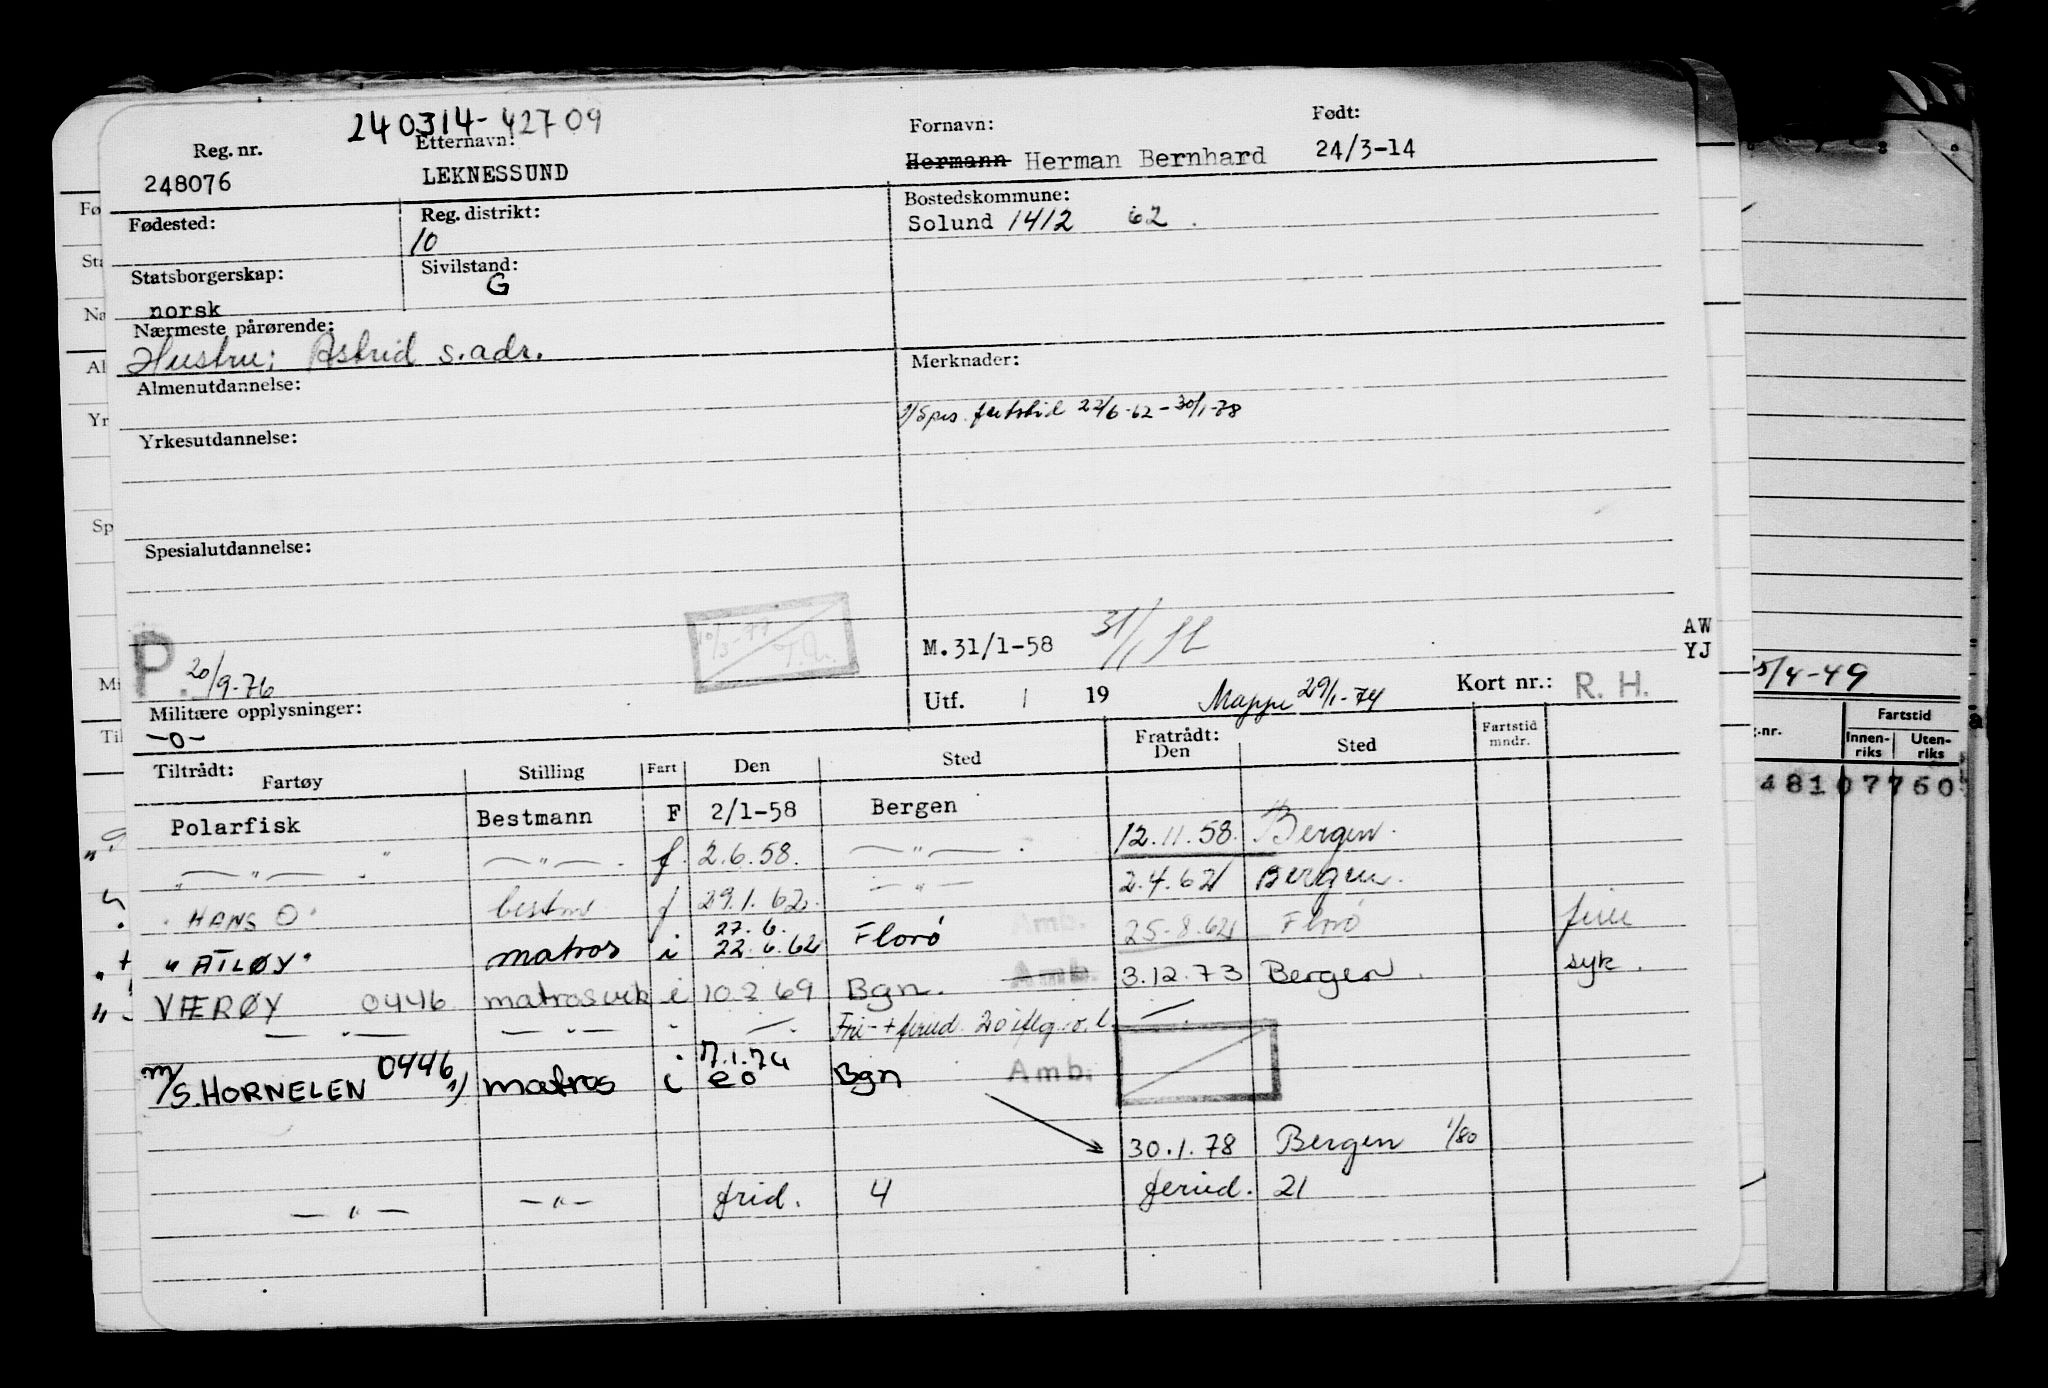 240314-42709
Reg. nr. Etternavn: Fornavn: Født:
248076 LEKNESSUND Hermann Herman Bernhard 24/3-14
Fødested: Reg. distrikt: Bostedskommune:
10 Solund 1412 62
Statsborgerskap: Sivilstand:
norsk G
Nærmeste pårørende:
Hustru; Astrid s. adr.
Almenutdannelse: Merknader:
1) Spes. fartstid 22/6-62-30/1-78
Yrkesutdannelse:
Spesialutdannelse:
M.31/1-58 31/1
AW
YJ
P. 20/9-76
Utf. / 19 Mappe 29/1-74 Kort nr.: R. H.
Militære opplysninger:
-0-
Tiltrådt: Fratrådt:
Fartøy Stilling Fart Den Sted Den Sted Fartstid mndr.
Polarfisk Bestmann F 2/1-58 Bergen
— " — — " — f. 2.6.58. — " — 12.11.58. Bergen.
"HANS O" bestm f 29.1.62. — " — 2.4.62 Bergen.
27.6.
"ATLØY" matros i 22.6.62 Florö Amb. 25-8.62 Florö ferie
VÆRØY 0446 matrosvik i 10.2 69 Bgn. Amb. 3.12.73 Bergen syk.
— " — — " — - —. Fri- + feried. —.
M/S. HORNELEN 0446 1) matros i 7.1.74 eo Bgn Amb.
30.1.78 Bergen 1/80
— " — — " — frid. 4 feried. 21
5/4-49
Fartstid
g.nr. Innenriks Utenriks
48107760
Fø
Sta
Na
Al
Yr
Sp
Mi
Til